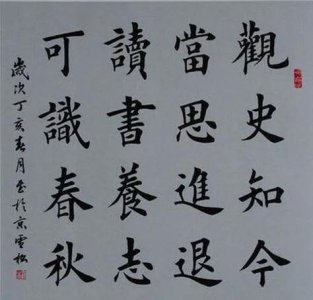 觀史知今
當思進退
讀書養志
可識春秋
歲次丁亥春月書於京雲松